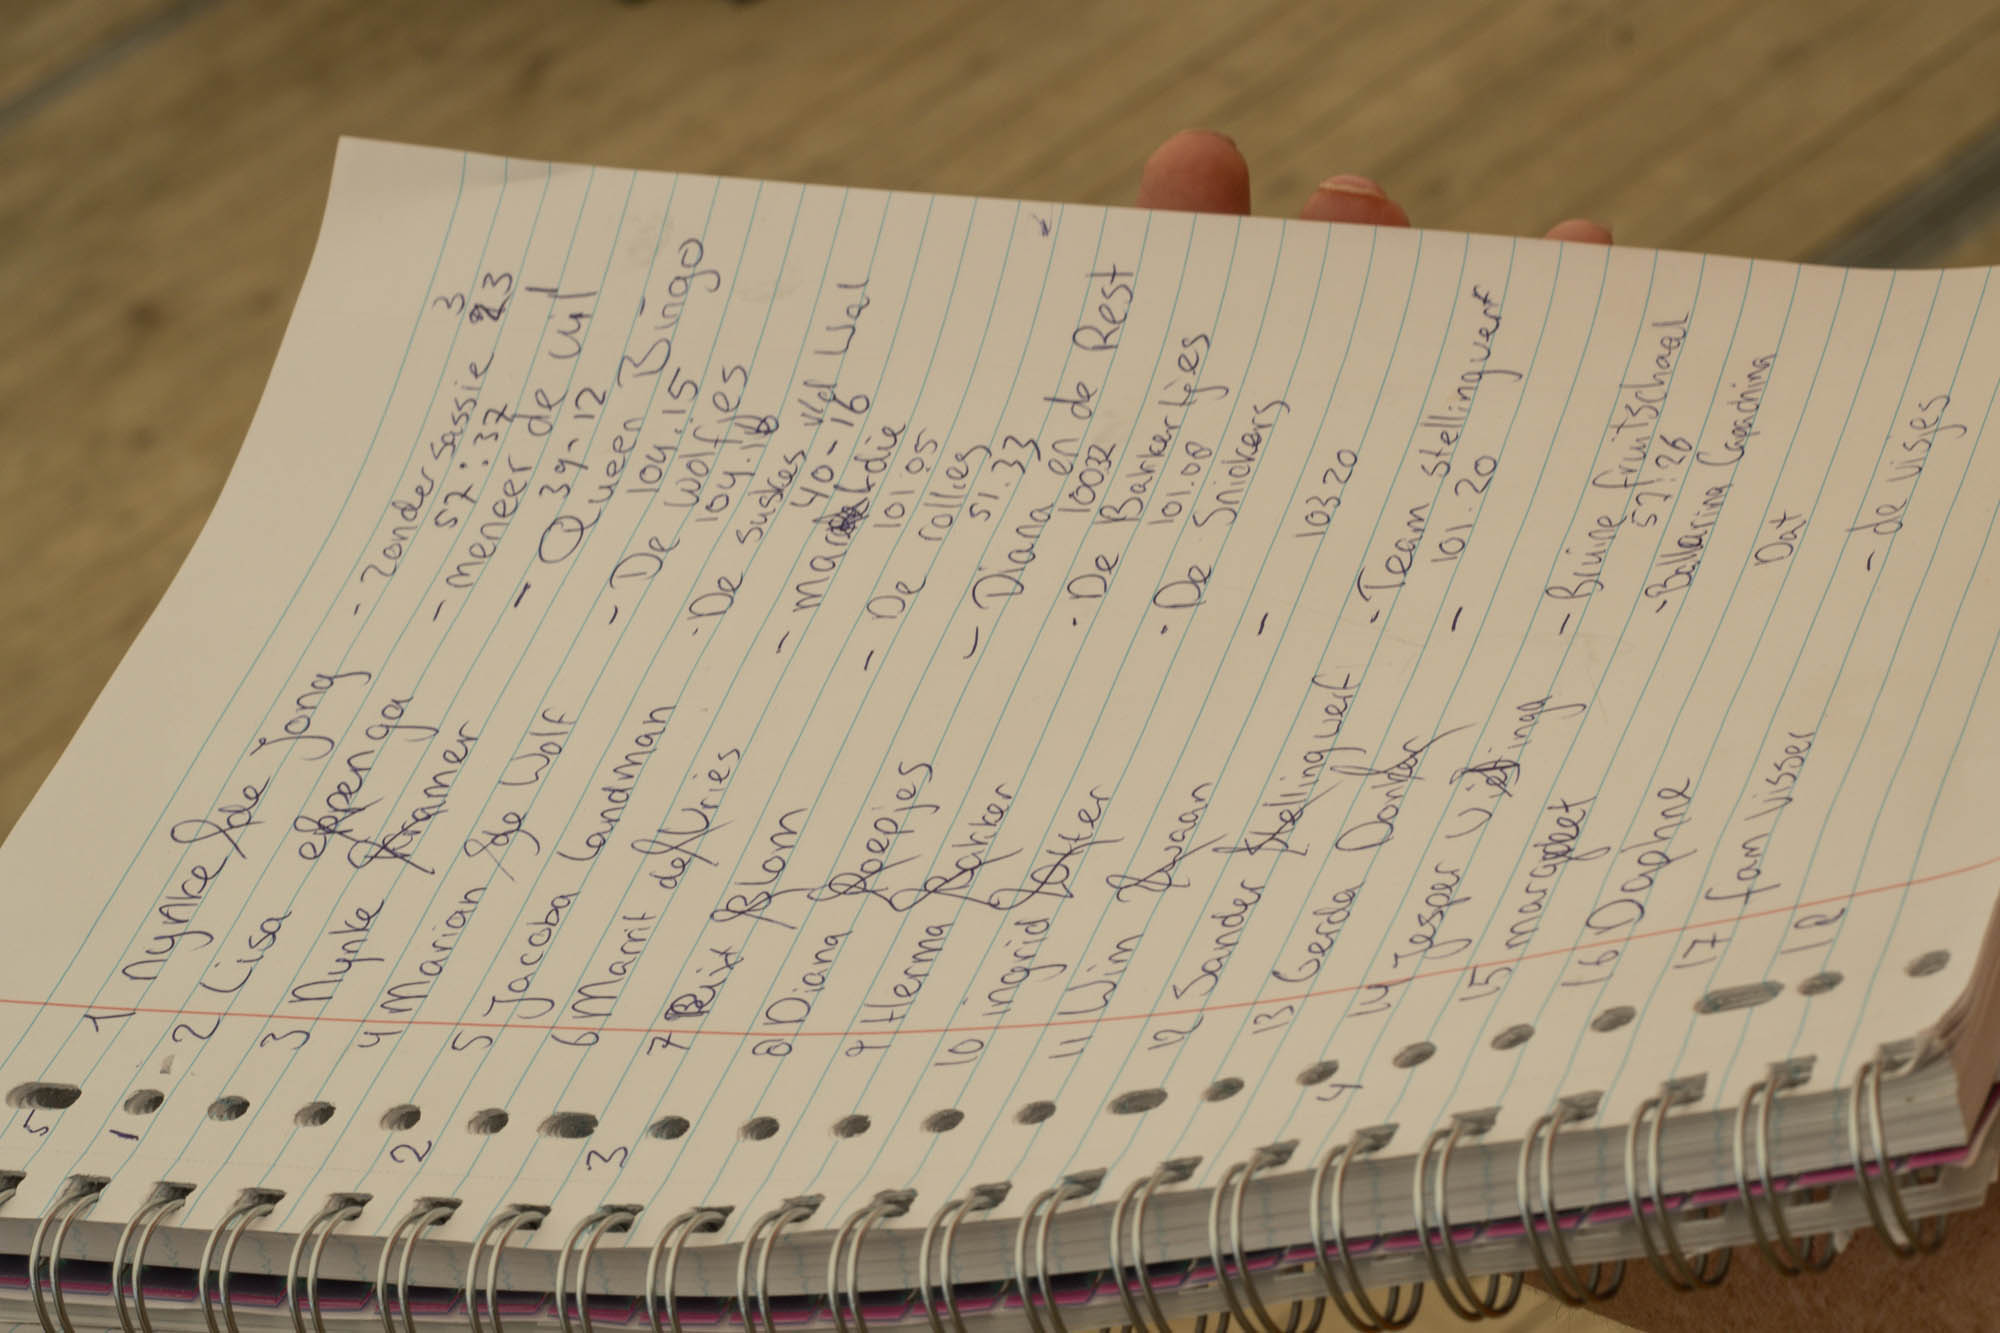 1 Nynke de Jong - Zondersassie 23 3
57:37
2 Lisa eppenga - meneer de uil
39-12
3 Nynke Kramer - Queen Bingo
104.15
4 Marian de Wolf - De Wolfjes
104.18
5 Jacoba Landman - De suskes v/d Wal
40-16
6 Marrit de Vries -
101.05
7 Riet Blom - De rollies
51.33
8 Diana Poepjes - Diana en de Rest
10032
9 Herma Bakker - De Bakkertjes
101.00
10 ingrid - De Snickers
11 Wim Zwaan -
10320
12 Sander Stellingwerf - Team Stellingwerf
101.20
13 Gerda Donker -
14 Jesper - Bruine fruitschaal
57:26
15 margreet - Ballarina
16 Daphne Dat
17 fam Visser - de visjes
18
5
1
2
3
4